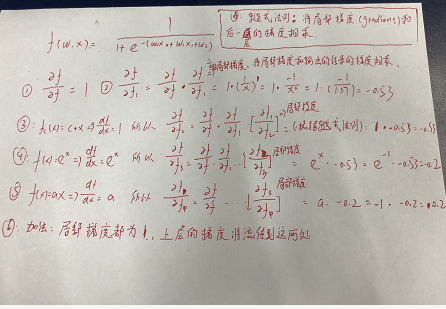 f(w,x)= 1 / (1+e^-(w₀x₀+w₁x₁+w₂))
链式法则: 将局部梯度(gradients)和后一层的梯度相乘。
局部梯度, 将局部梯度和输出的梯度相乘。
① ∂f/∂f = 1 ② ∂f/∂f₁ = ∂f/∂f · ∂f/∂f₁ = 1·(1/x)' = 1· -1/x² = 1·(-1/1.37²) = -0.53
③: f(x)=c+x => df/dx = 1 所以 ∂f/∂f₂ = ∂f/∂f · ∂f/∂f₁ · [∂f₁/∂f₂] 局部梯度 =(根据链式法则): 1·-0.53=-0.53
④: f(x)=eˣ => df/dx = eˣ 所以 ∂f/∂f₃ = ∂f/∂f · ∂f/∂f₁ ··· [∂f₂/∂f₃] 局部梯度 = eˣ·-0.53 = e⁻¹·-0.53=-0.2
⑤ f(x)=ax => df/dx = a 所以 ∂f/∂f₄ = ∂f/∂f ··· [∂f₃/∂f₄] 局部梯度 = a·-0.2=-1·-0.2=0.2
⑥: 加法: 局部梯度都为1, 上层的梯度将流经到这两处